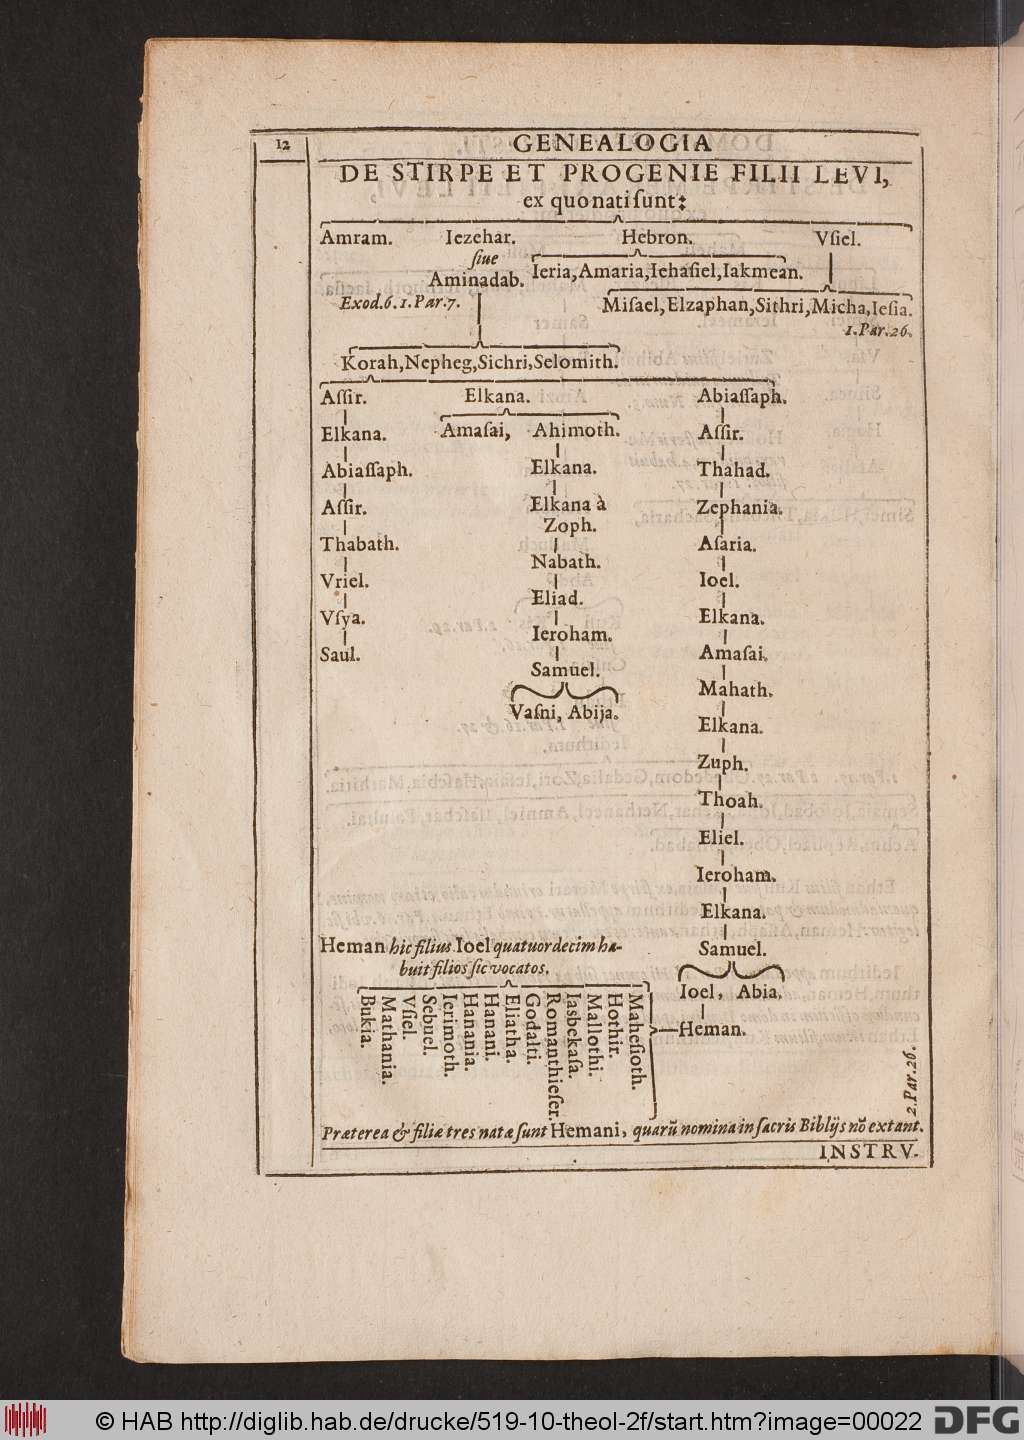 12
GENEALOGIA
DE STIRPE ET PROGENIE FILII LEVI,
ex quo nati ſunt:
Amram. Iezehar. Hebron. Vſiel.
ſiue
Aminadab.
Ieria, Amaria, Iehaſiel, Iakmean.
Exod. 6. 1. Par. 7.
Miſael, Elzaphan, Sithri, Micha, Ieſia.
1. Par. 26.
Korah, Nepheg, Sichri, Selomith.
Aſſir. Elkana. Abiaſſaph.
Elkana.
Abiaſſaph.
Aſſir.
Thabath.
Vriel.
Vſya.
Saul.
Amaſai, Ahimoth.
Elkana.
Elkana à
Zoph.
Nabath.
Eliad.
Ieroham.
Samuel.
Vaſni, Abija.
Aſſir.
Thahad.
Zephania.
Aſaria.
Ioel.
Elkana.
Amaſai.
Mahath.
Elkana.
Zuph.
Thoah.
Eliel.
Ieroham.
Elkana.
Samuel.
Ioel, Abia.
Heman.
Heman hic filius Ioel quatuordecim ha-
buit filios ſic vocatos.
Bukia.
Mathania.
Vſiel.
Sebuel.
Ierimoth.
Hanania.
Hanani.
Eliatha.
Godalti.
Romanthieſer.
Iasbekaſa.
Mallothi.
Hothir.
Maheſioth.
2. Par. 26.
Præterea & filiæ tres natæ ſunt Hemani, quarũ nomina in ſacris Biblijs nõ extant.
INSTRV-
© HAB http://diglib.hab.de/drucke/519-10-theol-2f/start.htm?image=00022
DFG